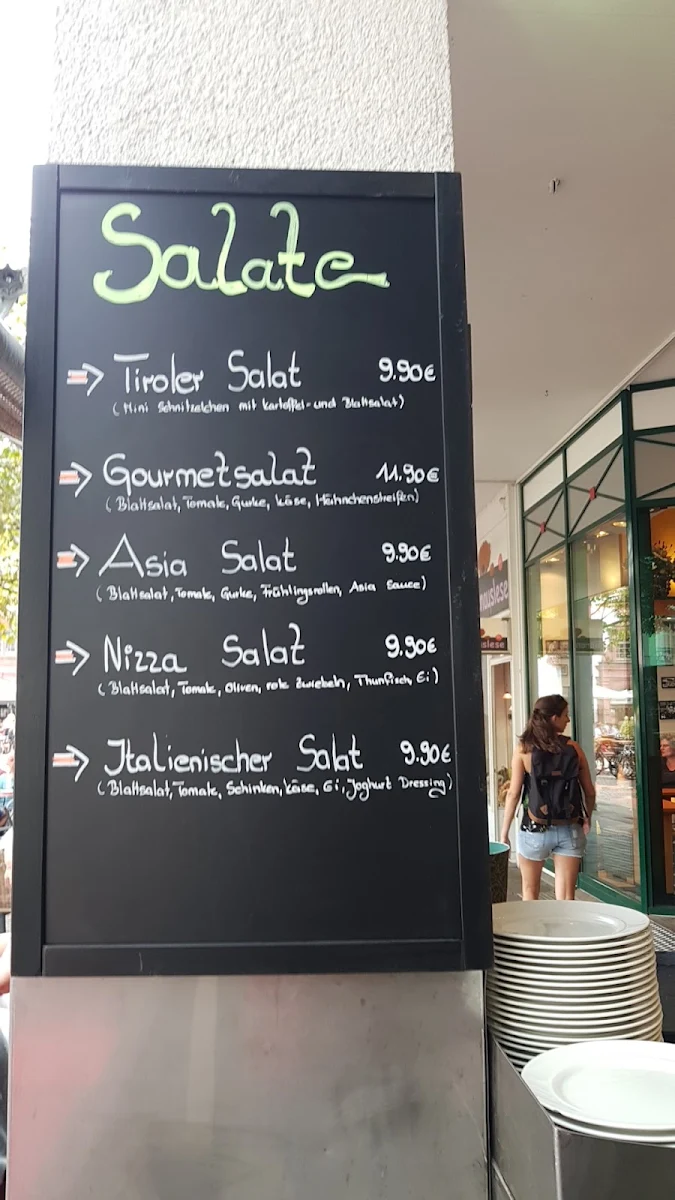 Salate
Tiroler Salat 9.90€
(Mini Schnitzelchen mit Kartoffel- und Blattsalat)
Gourmetsalat 11.90€
(Blattsalat, Tomate, Gurke, Käse, Hähnchenstreifen)
Asia Salat 9.90€
(Blattsalat, Tomate, Gurke, Frühlingsrollen, Asia Sauce)
Nizza Salat 9.90€
(Blattsalat, Tomate, Oliven, rote Zwiebeln, Thunfisch, Ei)
Italienischer Salat 9.90€
(Blattsalat, Tomate, Schinken, Käse, Ei, Joghurt Dressing)